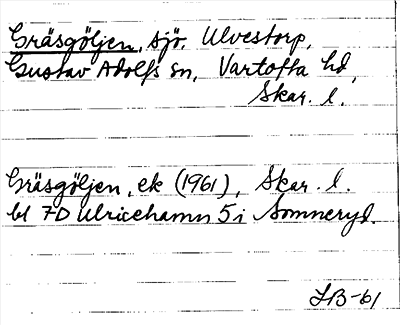 Gräsgöljen, sjö. Ulvestorp,
Gustav Adolfs sn, Vartofta hd,
Skar. l.
Gräsgöljen, ek (1961), Skar. l.
bl 7D Ulricehamn 5i Sömneryd.
IB-61